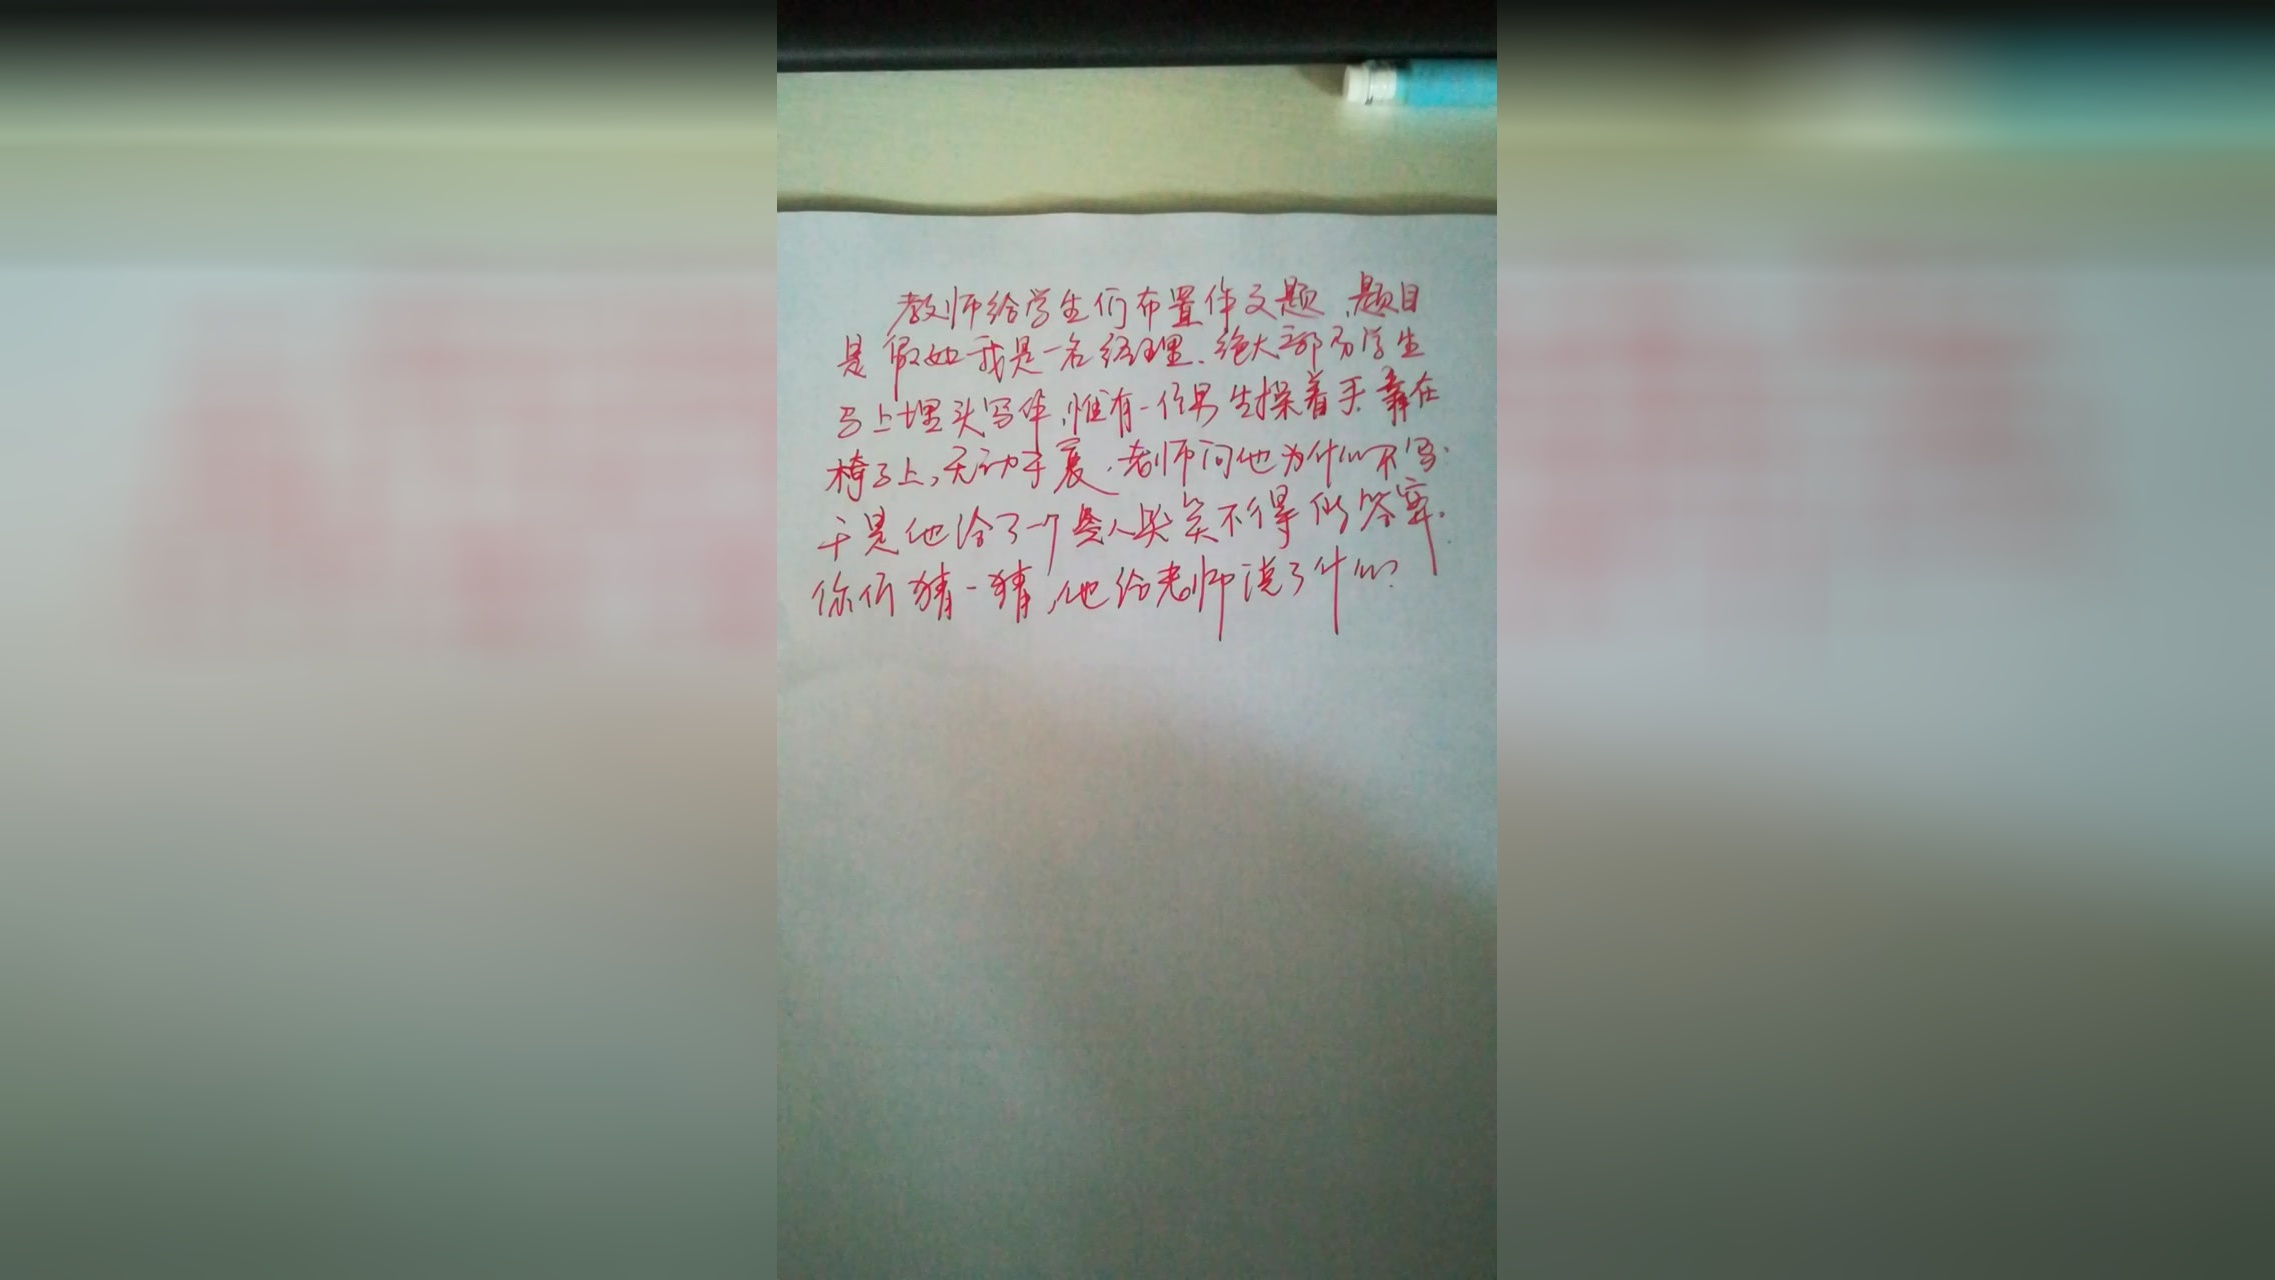 教师给学生们布置作文题,题目
是假如我是一名经理.绝大部分学生
马上埋头写作,惟有一位男生操着手靠在
椅子上,无动于衷.老师问他为什么不写.
于是他给了一个愚人哭笑不得的答案.
你们猜一猜,他给老师说了什么?